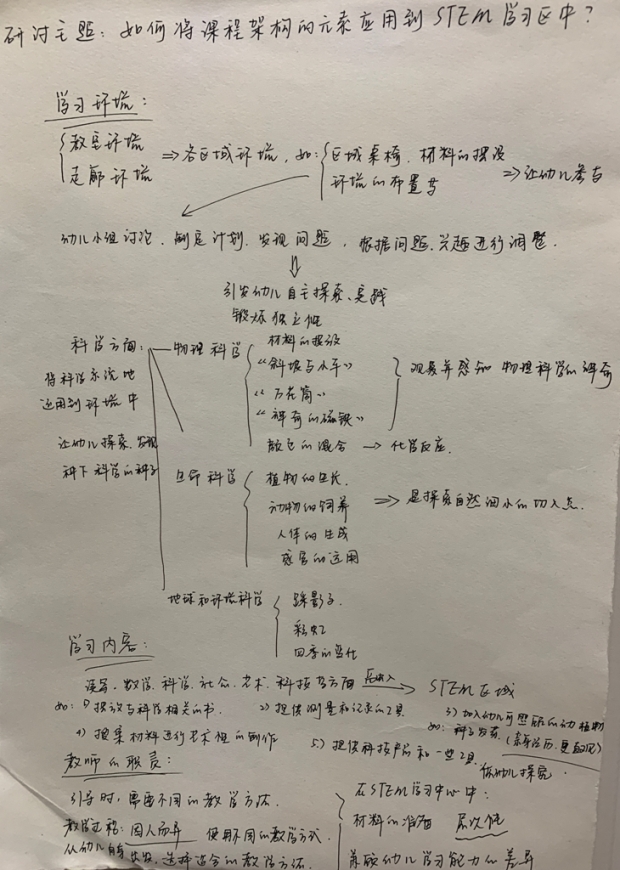 研讨主题：如何将课程架构的元素应用到STEM学习区中？
学习环境：
教室环境
走廊环境
⇒各区域环境，如：
区域桌椅、材料的摆设
环境的布置等
⇒让幼儿参与
幼儿小组讨论、制定计划、发现问题，根据问题、兴趣进行调整.
引发幼儿自主探索、实践
锻炼独立性
科学方面：
将科学系统地
运用到环境中
让幼儿探索、发现
种下科学的种子
物理科学
材料的摆设
“斜坡与小车”
“万花筒”
“神奇的磁铁”
观察并感知物理科学的神奇
颜色的混合 → 化学反应.
生命科学
植物的生长.
动物的饲养
人体的生成
感官的运用
⇒ 是探索自然细小的切入点.
地球和环境科学
踩影子.
彩虹
四季的变化
学习内容：
读写、数学、科学、社会、艺术、科技等方面 → STEM区域
如：1）摆设与科学相关的书. 2）提供测量和记录的工具 3）加入幼儿可照顾的动植物
如：种子发芽.
4）搜集材料进行艺术性的创作 5）提供科技产品和一些工具 供幼儿探究.
教师的职责：
引导时，需要不同的教学方法.
教学过程：因人而异 使用不同的教学方式.
从幼儿自身出发，选择适合的教学方法.
在STEM学习中心中：
材料的准备 层次性
兼顾幼儿学习能力的差异